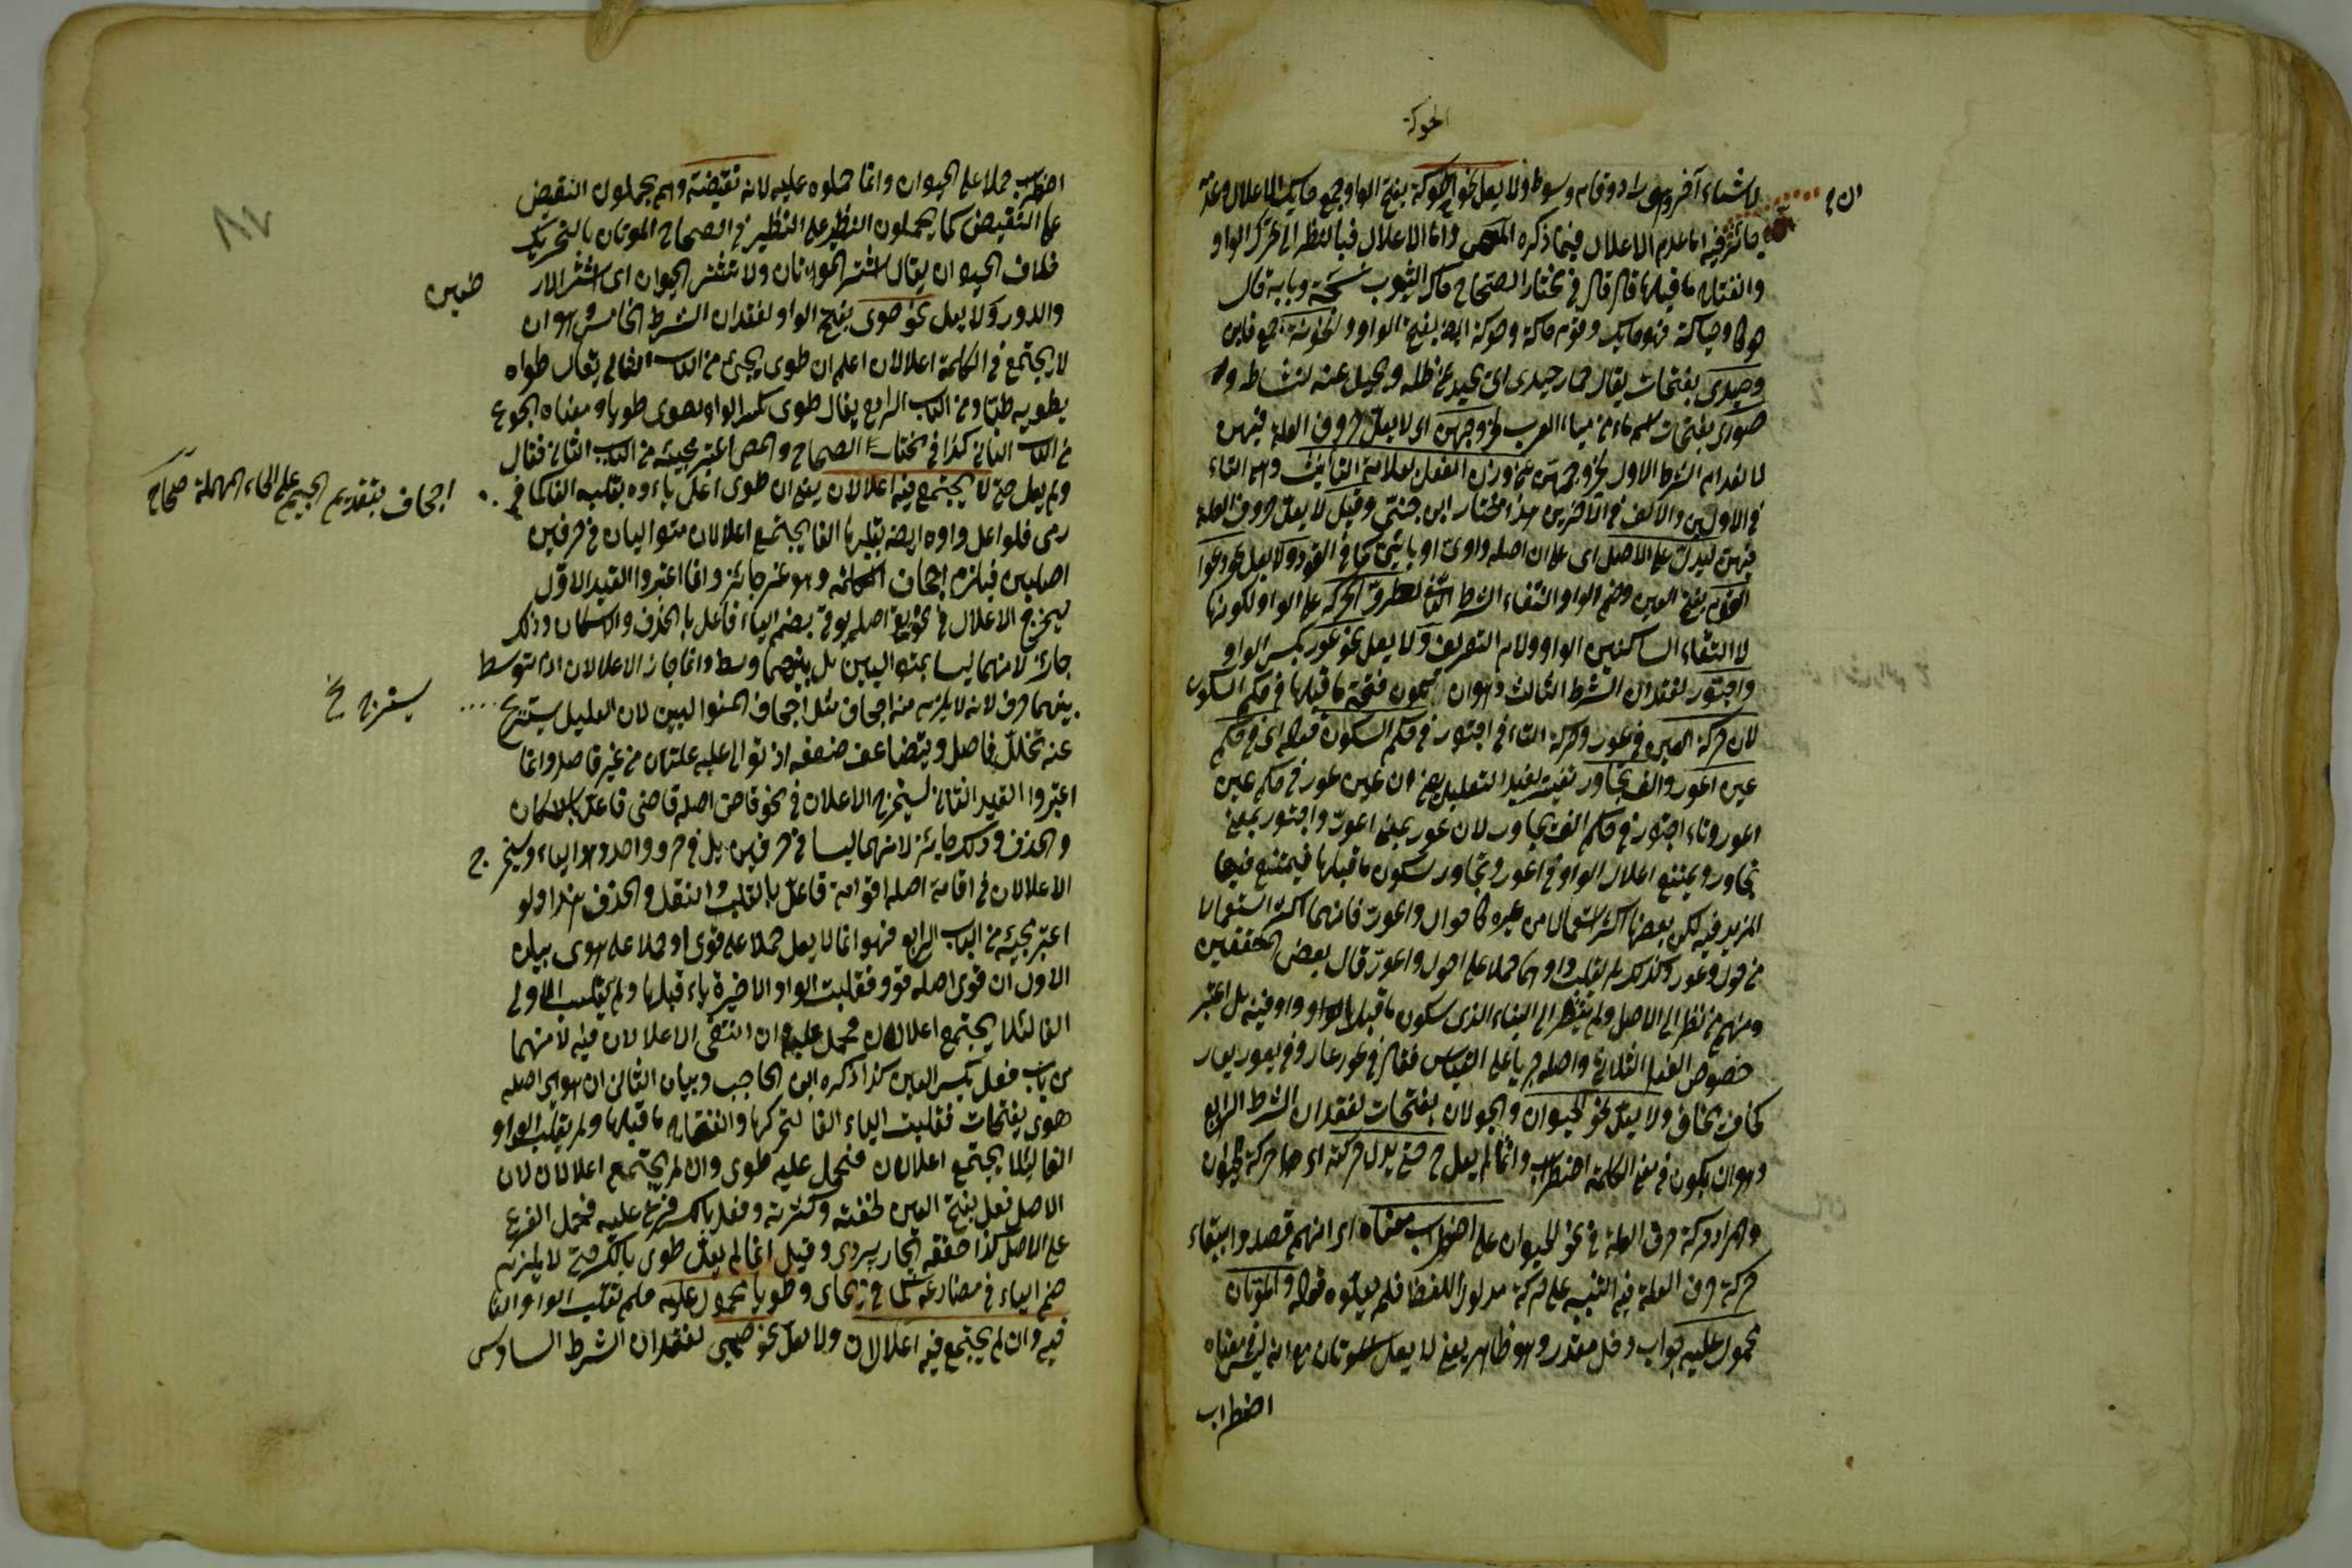 الحوكة
لاشياء آخر وهى دار دوقام وسوط ولا يعل نحو الحوكة بفتح الواو جمع حايك الاعلال وعد
فيه اما عدم الاعلال فيما ذكره المص واما الاعلال فبالنظر الى تحرك الواو
وانفتاح ما قبلها قال في مختار الصحاح حاك الثوب نسجه وبابه قال
حوكا وحياكة فهو حايك وقوم حاكة وحوكة ايضا بفتح الواو والخونة جمع خاين
وحيدى بفتحات يقال حمار حيدى اى يحيد عن ظله ويميل عنه لنشاطه و
صورى بفتحات اسم ماء من مياه العرب لخروجهن اى لا يعل حروف العلة فيهن
لانعدام الشرط الاول لخروجهن عن وزن الفعل بعلامة التأنيث وهى التاء
في الاولين والالف في الآخرين هذا مختار ابن جنى وقيل لا يعل حروف العلة
فيهن ليدل على الاصل اى على ان اصله واوى او يائى كما في القود ولا يعل نحو دعوا
القوم بفتح العين وضم الواو لانتفاء الشرط الثانى لطرو الحركة على الواو لكونها
لالتقاء الساكنين الواو ولام التعريف ولا يعل نحو عور بكسر الواو
واجتور لفقدان الشرط الثالث وهو ان يكون فتحة ما قبلها في حكم السكون
لان حركة العين في عور وحركة التاء في اجتور في حكم السكون قوله اى في حكم
عين اعور والف تجاور تفسير يفيد التعليل يعنى ان عين عور في حكم عين
اعور وتاء اجتور في حكم الف تجاور لان عور بمعنى اعور واجتور بمعنى
تجاور ويمتنع اعلال الواو في اعور وتجاور لسكون ما قبلها فيمتنع فيها
المزيد فيه لكن بعضها اكثر استعمالا من غيره كاحوال واعور فانهما اكثر استعمالا
من حول وعور وكذلك لم يقلب واوهما حملا على احول واعور قال بعض المحققين
ومنهم من نظر الى الاصل ولم ينظر الى البناء الذى سكون ما قبل الواو واو فيه بل اعتبر
خصوص الفعل الثلاثى واصله جريا على القياس فقال في عور عار وفي يعور يعار
كخاف يخاف ولا يعل نحو الحيوان والجولان بفتحات لفقدان الشرط الرابع
وهو ان يكون في معنى الكلمة اضطراب وانما لم يعل حتى يدل حركته اى حركة الحيوان
والمراد حركة حرف العلة في نحو الحيوان على اضطراب معناه اى انهم قصدوا ابقاء
حركة حرف العلة فيه التنبيه على حركة مدلول اللفظ فلم يعلوه قوله والموتان
محمول عليه جواب دخل مقدر وهو ظاهر يعنى لا يعل الموتان مع انه ليس في معناه
اضطراب
اضطراب حملا على الحيوان وانما حملوه عليه لانه نقيضه وهم يحملون النقيض
على النقيض كما يحملون النظير على النظير في الصحاح الموتان بالتحريك
خلاف الحيوان يقال اشتر الموتان ولا تشتر الحيوان اى اشتر الار
ضين
والدور ولا يعل نحو طوى بفتح الواو لفقدان الشرط الخامس وهو ان
لا يجتمع في الكلمة اعلالان اعلم ان طوى يجئ من الباب الثانى يقال طواه
يطويه طيا ومن الباب الرابع يقال طوى بكسر الواو يطوى طويا ومعناه الجوع
من الباب الثانى كذا في مختار الصحاح والمص اعتبر مجيئه من الباب الثانى فقال
ولم يعل حتى لا يجتمع فيه اعلالان يعنى ان طوى اعل ياءوه بقلبه الفا كما في
اجحاف بتقديم الجيم على الحاء المهملة صحاح
رمى فلو اعل واوه ايضا بقلبها الفا يجتمع اعلالان متواليان في حرفين
اصليين فيلزم اجحاف الكلمة وهو غير جائز وانما اعتبروا القيد الاول
ليخرج الاعلال في نحو يع اصله يوقى بضم الياء فاعل بالحذف والاسكان وذلك
جائز لانهما ليسا بمتواليين بل بينهما وسط وانما جاز الاعلالان اذا توسط
بينهما حرف لانه لا يلزم منه اجحاف مثل اجحاف المتواليين لان العليل يستريح
يستريح خ
عنه تخلل فاصل ويتضاعف ضعفه اذا توالى عليه علتان من غير فاصل وانما
اعتبروا القيد الثانى ليخرج الاعلان في نحو قاض اصله قاضى فاعل بالاسكان
والحذف وذلك جائز لانهما ليسا في حرفين بل في حرف واحد وهو الياء ويخرج
الاعلالان في اقامة اصله اقوامة فاعل بالقلب والنقل والحذف هذا ولو
اعتبر مجيئه من الباب الرابع فهو انما لا يعل حملا على قوى او حملا على هوى بيان
الاول ان قوى اصله قوو فقلبت الواو الاخيرة ياء قبلها ولم يقلب الاولى
الفا لئلا يجتمع اعلالان فحمل عليه وان انتفى الاعلالان فيه لانهما
من باب فعل بكسر العين كذا ذكره ابن الحاجب وبيان الثانى ان هوى اصله
هوى بفتحات فقلبت الياء الفا لتحركها وانفتاح ما قبلها ولم يقلب الواو
الفا لئلا يجتمع اعلالان فحمل عليه طوى وان لم يجتمع اعلالان لان
الاصل فعل بفتح العين لخفته وكثرته وفعل بالكسر فرع عليه فحمل الفرع
على الاصل كذا حققه الجاربردى وقيل انما لم يعل طوى بالكسر حتى لا يلزم
ضم الياء في مضارعه كما في يحاى وطويا محمول عليه فلم تقلب الواو الفا
فيه وان لم يجتمع فيه اعلالان ولا يعل نحو حيى لفقدان الشرط السادس